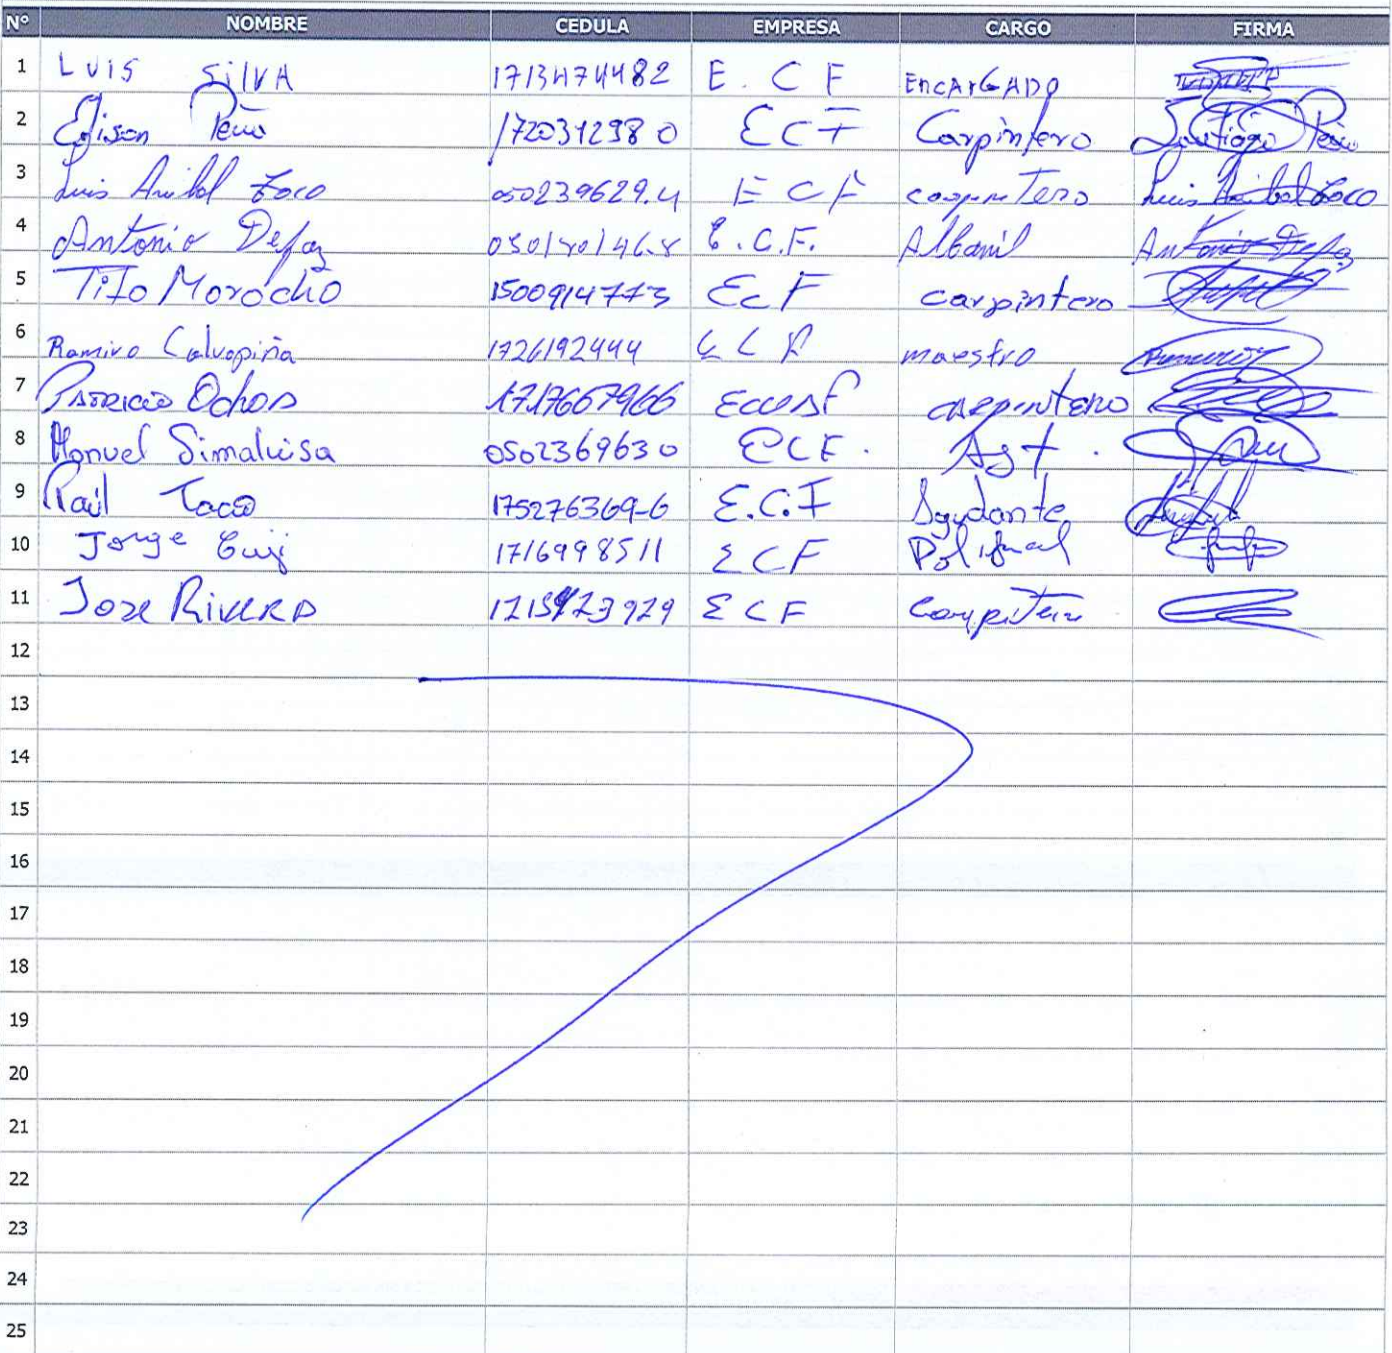 Nº NOMBRE CEDULA EMPRESA CARGO FIRMA
1 LUIS SILVA 1713474482 E. C F ENCARGADO
2 Edison Peña 1720312980 ECF Carpintero Santiago Peña
3 Luis Anibal Toco 050239629.4 E C F carpintero Luis Anibal Toco
4 Antonio Defaz E.C.F. Albanil Antonio Defaz
5 Tito Morocho 1500914773 EcF carpintero
6 Ramiro Calvopiña 1726192444 maestro
7 PATRICIO Ochoa 1717667966 carpintero
8 Manuel Simaluisa 0502369630 ECF. Ast.
9 Raúl Taco 175276369-6 E.C.F Ayudante
10 Jorge Cuji 1716998511 ECF
11 Jose RIVERA ECF
12
13
14
15
16
17
18
19
20
21
22
23
24
25